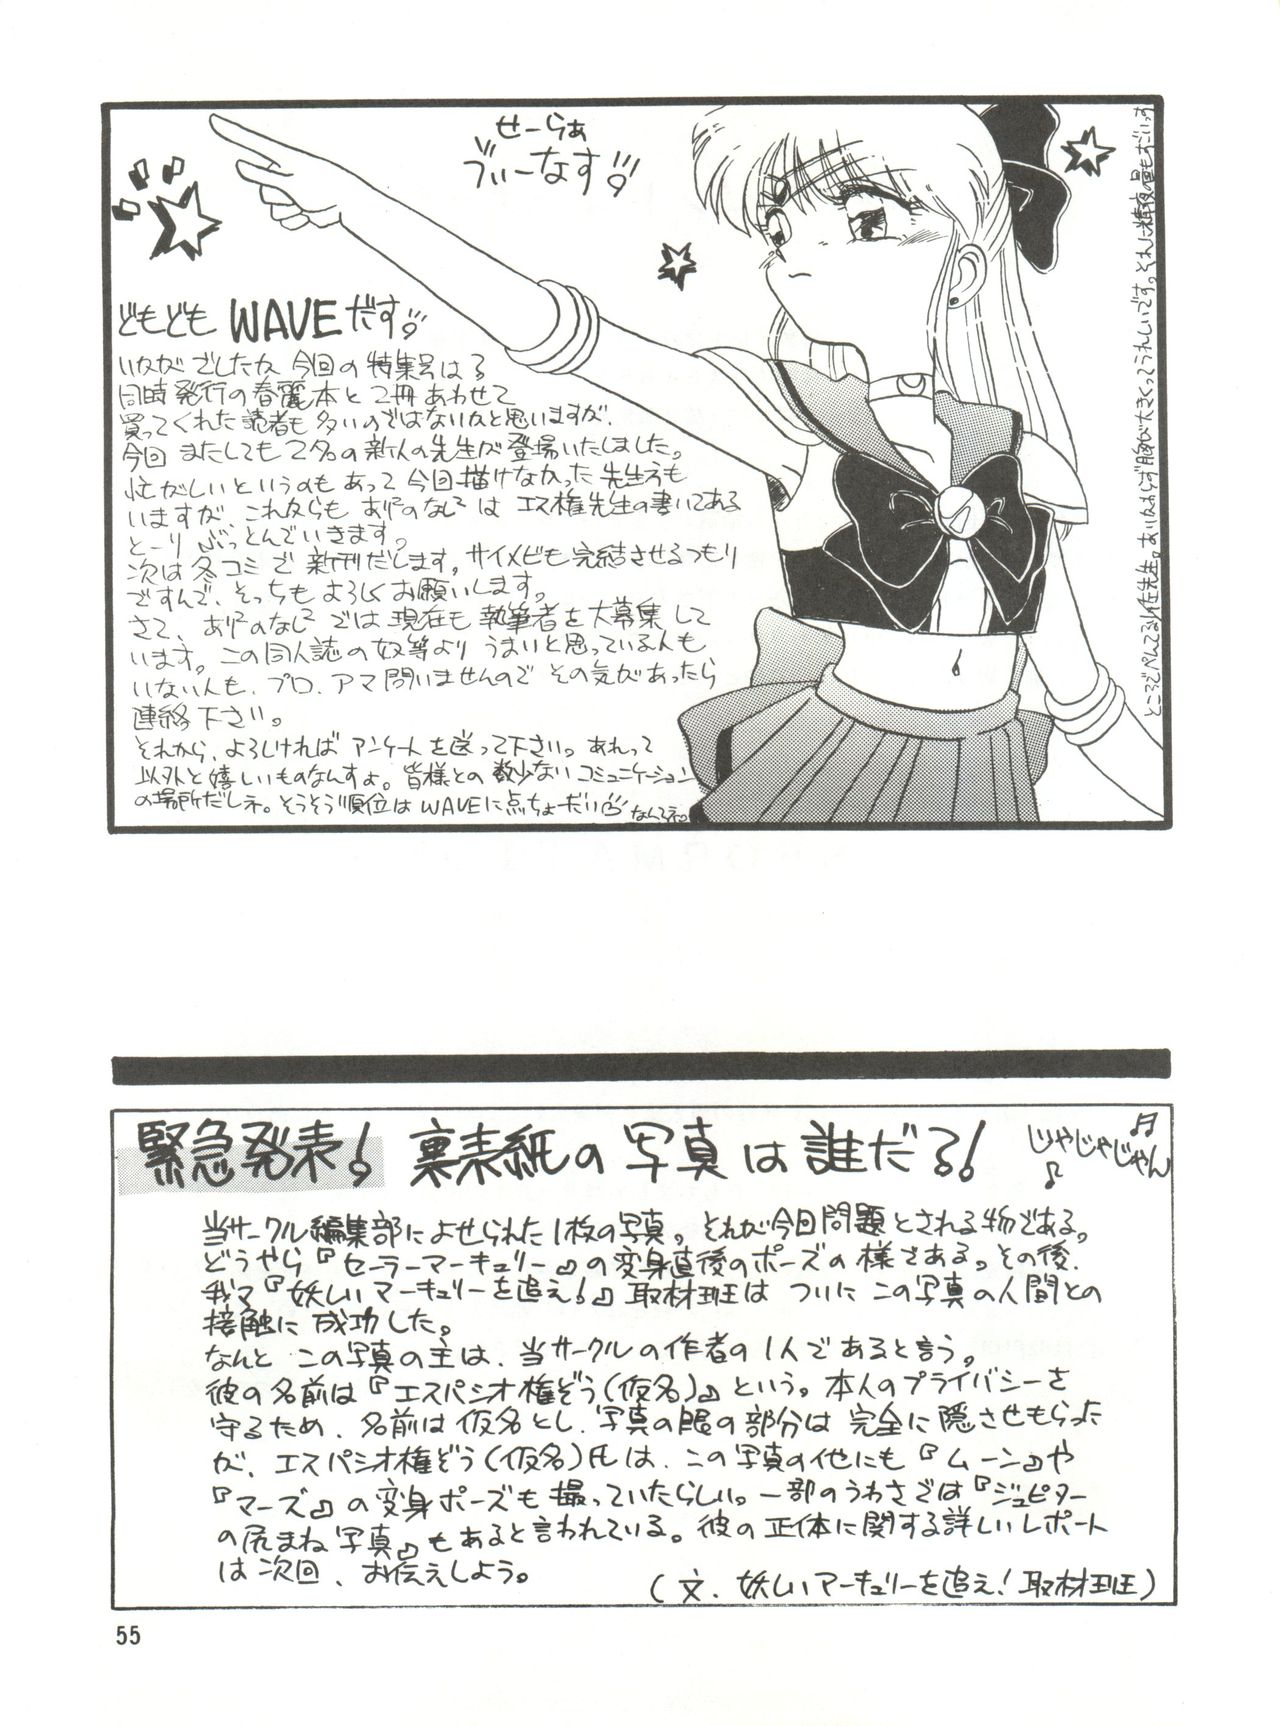 せーらぁ
ぶぃーなす!!
どもども WAVEだす!!
いかがでしたか 今回の特集号は?
同時発行の春麗本と2冊あわせて
買ってくれた読者も多いのではないかと思いますが、
今回またしても2名の新人の先生が登場いたしました。
忙がしいというのもあって今回描けなかった先生方も
いますが これからも ありすのなしつは エス権先生の書いてある
とーり ぶっとんでいきます。
次は冬コミで新刊だします。サイメビも完結させるつもり
ですんで、そっちもよろしくお願いします。
さて、では現在も執筆者を大募集して
います。この同人誌の奴等よりうまいと思っている人も
いない人も、プロ、アマ問いませんので その気があったら
連絡下さい。
それから、よろしければ アンケートを送って下さい。あれって
以外と嬉しいものなんすよ。皆様との数少ないコミュニケーション
の場所だしネ。そうそう順位はWAVEに点ちょーだい なんてネ。
ところでぺんてる任先生。胸が大きくってうれしいです。それに
緊急発表! 裏表紙の写真は誰だろ!
じゃじゃじゃん
当サークル編集部によせられた1枚の写真。それが今回問題とされる物である。
どうやら『セーラーマーキュリー』の変身直後のポーズの様である。その後、
我々『妖しいマーキュリーを追え!』取材班は ついに この写真の人間との
接触に成功した。
なんと この写真の主は、当サークルの作者の1人であると言う。
彼の名前は『エスパシオ権ぞう(仮名)』という。本人のプライバシーを
守るため、名前は仮名とし、写真の眼の部分は完全に隠させもらった
が、エスパシオ権ぞう(仮名)氏は、この写真の他にも『ムーン』や
『マーズ』の変身ポーズも撮っていたらしい。一部のうわさでは『ジュピター
の尻まね写真』もあると言われている。彼の正体に関する詳しいレポート
は次回、お伝えしよう。
(文、妖しいマーキュリーを追え!取材班)
55